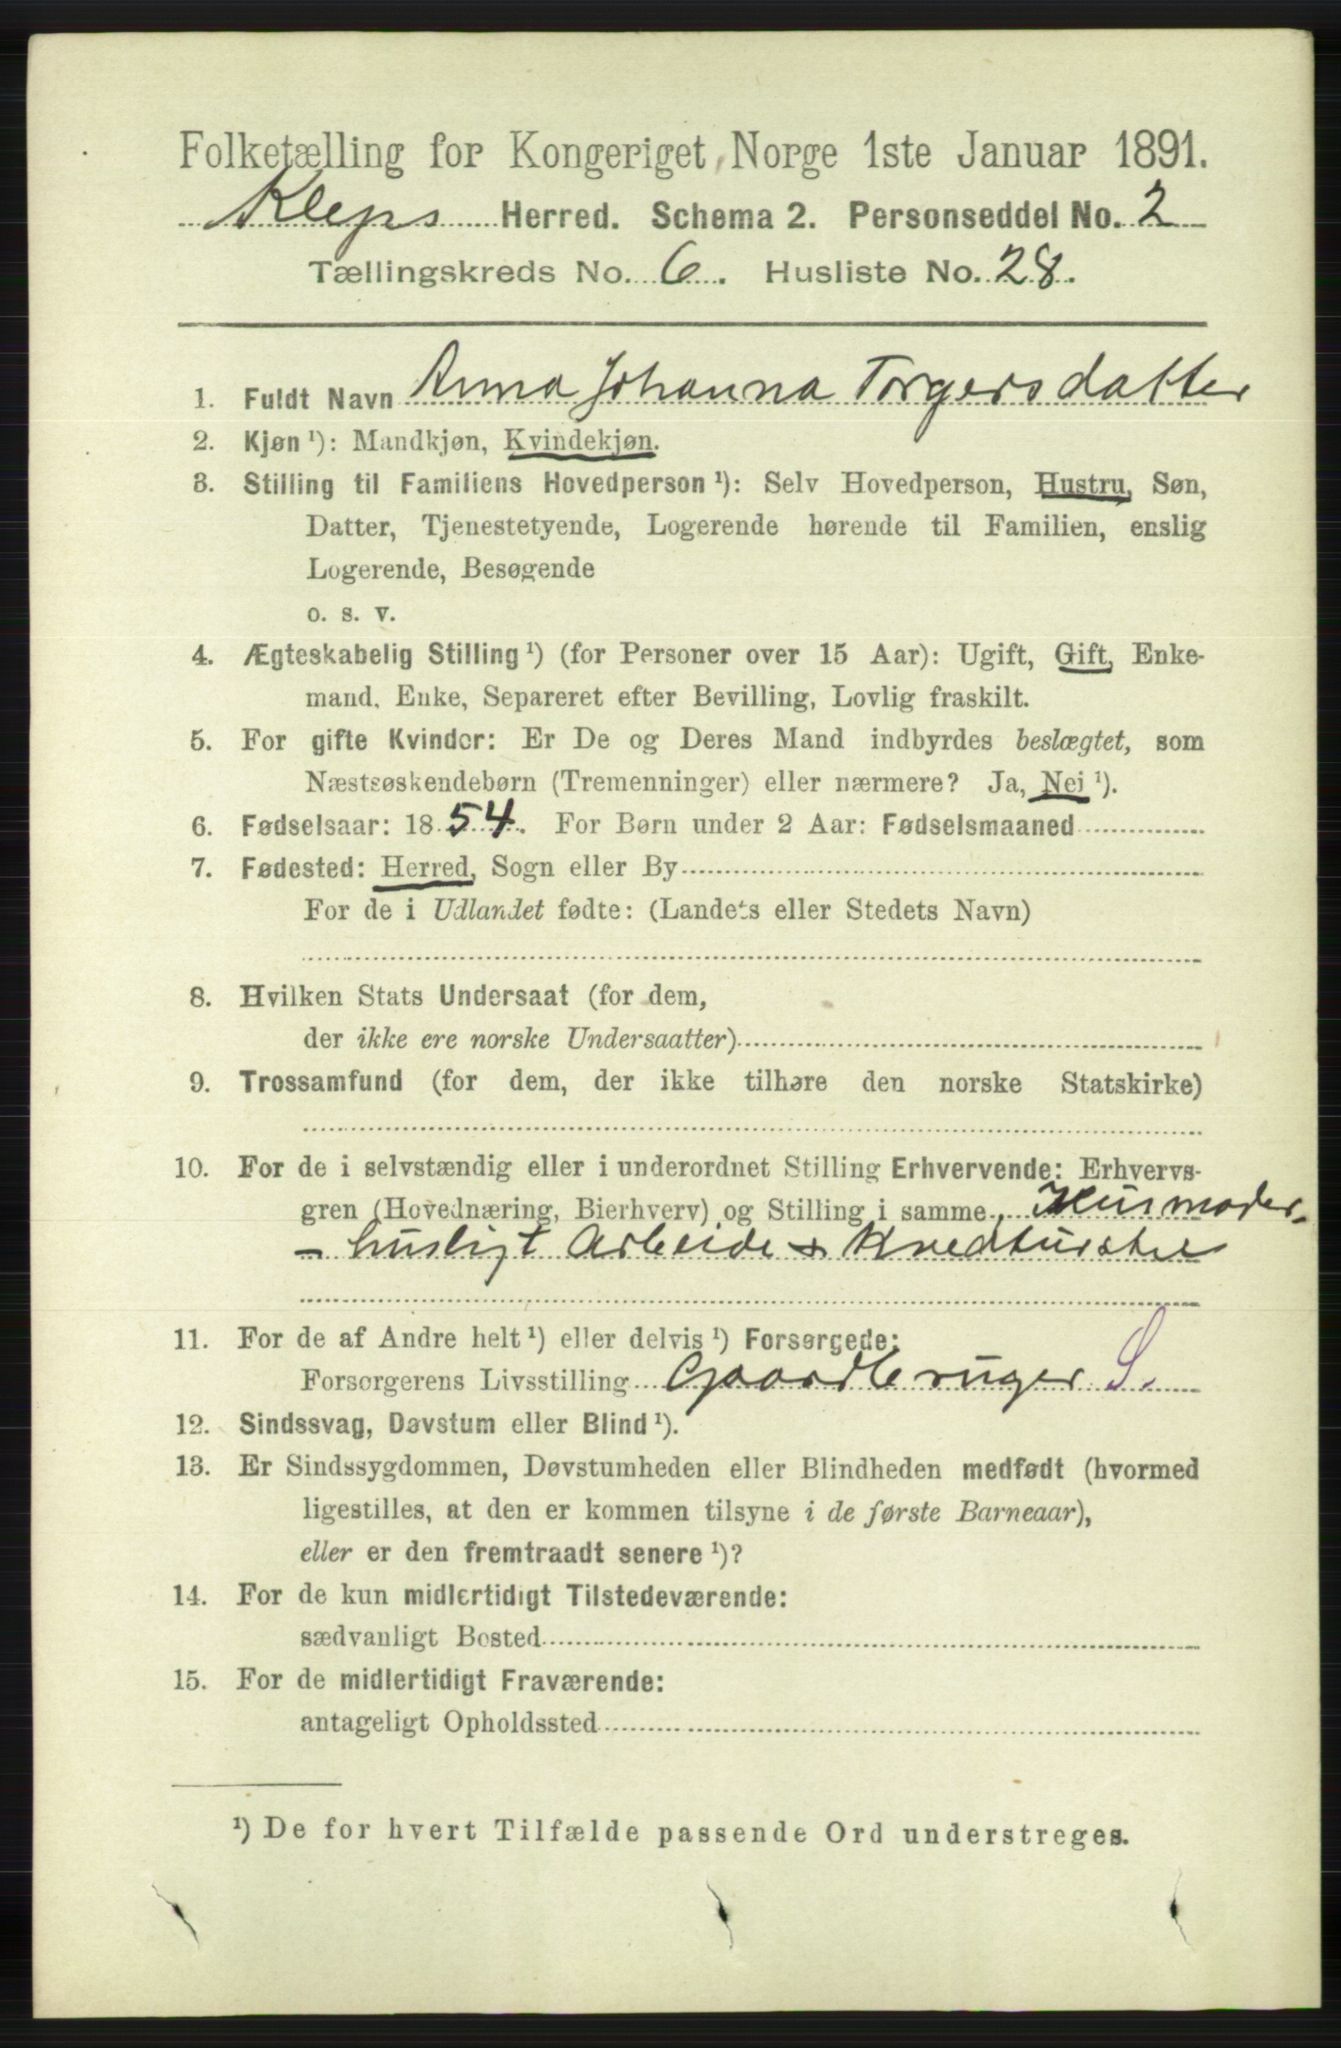 Folketælling for Kongeriget Norge 1ste Januar 1891.
Kleps Herred. Schema 2. Personseddel No. 2
Tællingskreds No. 6. Husliste No. 28.
1. Fuldt Navn Anna Johanna Torgersdatter
2. Kjøn ¹): Mandkjøn, Kvindekjøn.
3. Stilling til Familiens Hovedperson ¹): Selv Hovedperson, Hustru, Søn,
Datter, Tjenestetyende, Logerende hørende til Familien, enslig
Logerende, Besøgende
o. s. v.
4. Ægteskabelig Stilling ¹) (for Personer over 15 Aar): Ugift, Gift, Enke-
mand, Enke, Separeret efter Bevilling, Lovlig fraskilt.
5. For gifte Kvinder: Er De og Deres Mand indbyrdes beslægtet, som
Næstsøskendebørn (Tremenninger) eller nærmere? Ja, Nei ¹).
6. Fødselsaar: 1854. For Børn under 2 Aar: Fødselsmaaned
7. Fødested: Herred, Sogn eller By
For de i Udlandet fødte: (Landets eller Stedets Navn)
8. Hvilken Stats Undersaat (for dem,
der ikke ere norske Undersaatter)
9. Trossamfund (for dem, der ikke tilhøre den norske Statskirke)
10. For de i selvstændig eller i underordnet Stilling Erhvervende: Erhvervs-
gren (Hovednæring, Bierhverv) og Stilling i samme Husmoder-
- husligt Arbeide & Kredturstel
11. For de af Andre helt ¹) eller delvis ¹) Forsørgede:
Forsørgerens Livsstilling Gaardbruger S.
12. Sindssvag, Døvstum eller Blind ¹).
13. Er Sindssygdommen, Døvstumheden eller Blindheden medfødt (hvormed
ligestilles, at den er kommen tilsyne i de første Barneaar),
eller er den fremtraadt senere ¹)?
14. For de kun midlertidigt Tilstedeværende:
sædvanligt Bosted
15. For de midlertidigt Fraværende:
antageligt Opholdssted
¹) De for hvert Tilfælde passende Ord understreges.